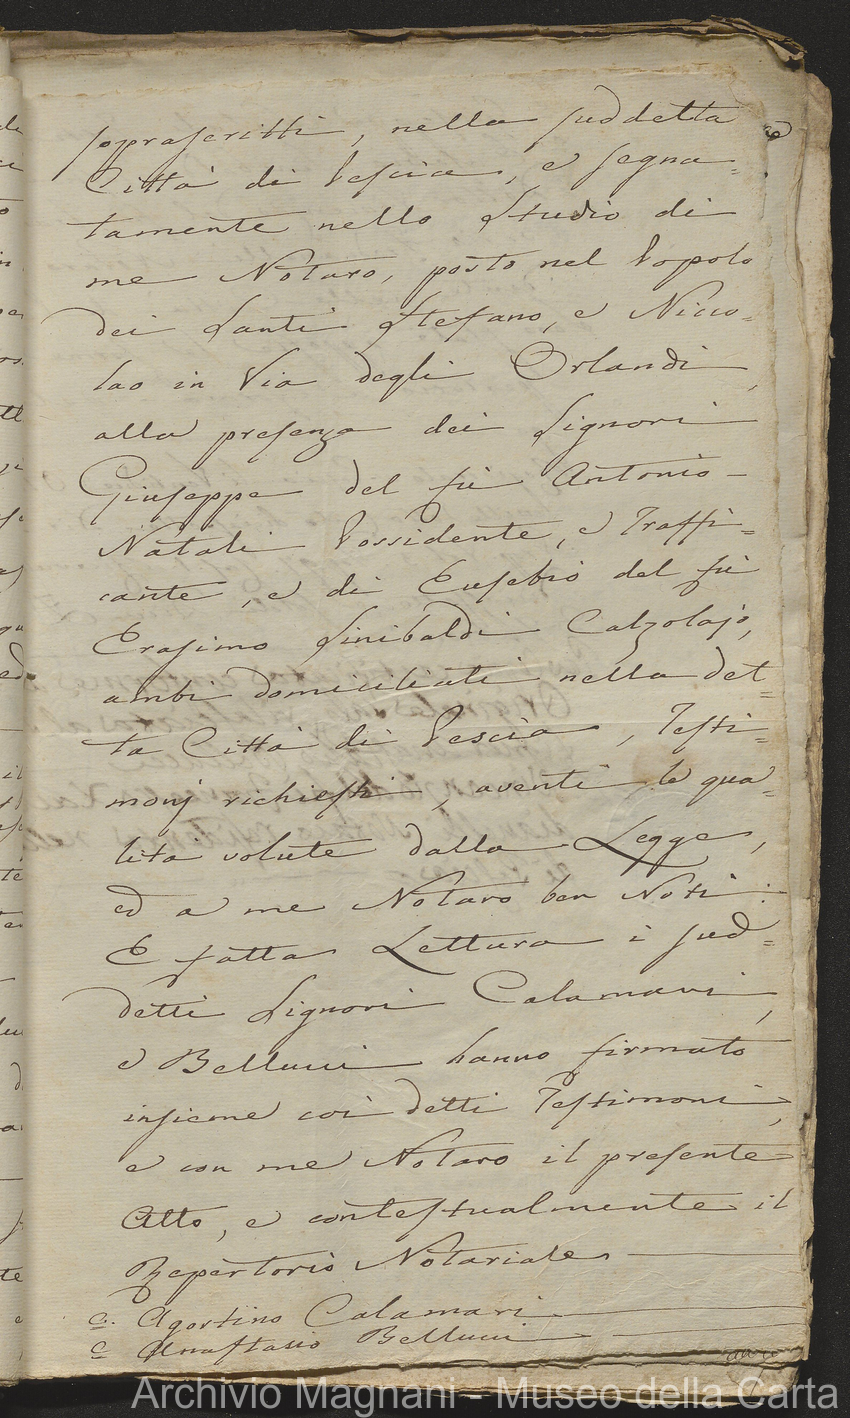 soprascritti, nella suddetta
Città di Pescia, e segna=
tamente nello Studio di
me Notaro, posto nel Popolo
dei Santi Stefano, e Nicco-
lao in Via degli Orlandi,
alla presenza dei Signori
Giuseppe del fù Antonio
Natali Possidente, e Traffi=
cante, e di Eusebio del fù
Erasimo Sinibaldi Calzolajo,
ambi domiciliati nella det=
ta Città di Pescia, Testi=
monj richiesti, aventi le qua=
lità volute dalla Legge,
ed a me Notaro ben Noti.
E fatta Lettura i sud=
detti Signori Calamari,
e Bellucci hanno firmato
insieme coi detti Testimoni,
e con me Notaro il presente
Atto, e contestualmente il
Repertorio Notariale
C. Agostino Calamari
C Anastasio Bellucci
Archivio Magnani - Museo della Carta